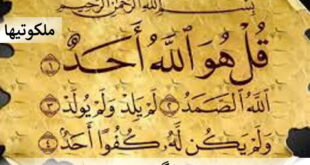 ملکوتیها
بِسْمِ اللَّهِ الرَّحْمَنِ الرَّحِيمِ
قُلْ هُوَ اللَّهُ أَحَدٌ ١
اللَّهُ الصَّمَدُ ٢ لَمْ يَلِدْ وَلَمْ يُولَدْ ٣
وَلَمْ يَكُن لَّهُ كُفُوًا أَحَدٌ ٤